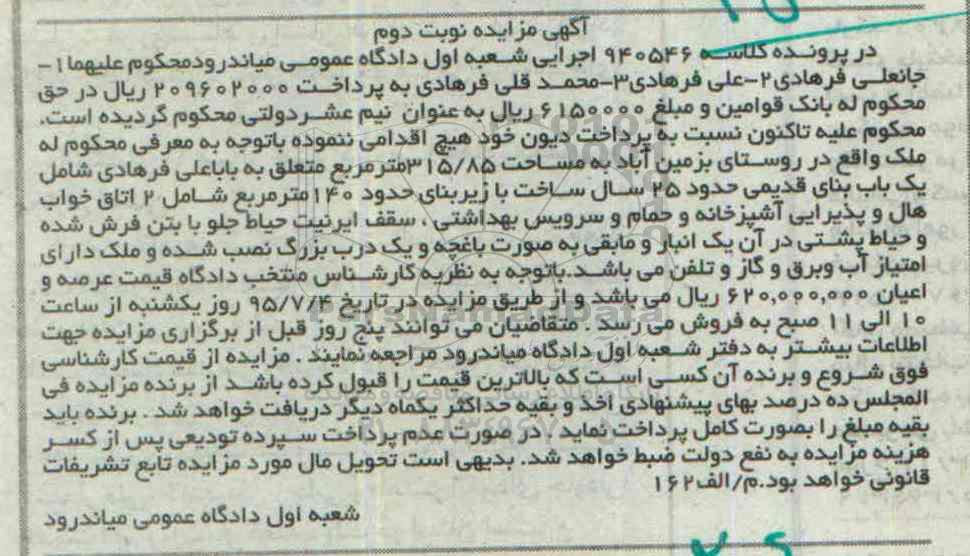 آگهی مزایده نوبت دوم
در پرونده کلاسه ۹۴۰۵۴۶ اجرایی شعبه اول دادگاه عمومی میاندرودمحکوم علیهما ۱-
جانعلی فرهادی۲-علی فرهادی۳-محمد قلی فرهادی به پرداخت ۲۰۹۶۰۲۰۰۰ ریال در حق
محکوم له بانک قوامین و مبلغ ۶۱۵۰۰۰۰ ریال به عنوان نیم عشردولتی محکوم گردیده است.
محکوم علیه تاکنون نسبت به پرداخت دیون خود هیچ اقدامی ننموده باتوجه به معرفی محکوم له
ملک واقع در روستای بزمین آباد به مساحت ۳۱۵/۸۵مترمربع متعلق به باباعلی فرهادی شامل
یک باب بنای قدیمی حدود ۲۵ سال ساخت با زیربنای حدود ۱۴۰مترمربع شامل ۲ اتاق خواب
هال و پذیرایی آشپزخانه و حمام و سرویس بهداشتی ، سقف ایرنیت حیاط جلو با بتن فرش شده
و حیاط پشتی در آن یک انبار و مابقی به صورت باغچه و یک درب بزرگ نصب شده و ملک دارای
امتیاز آب وبرق و گاز و تلفن می باشد.باتوجه به نظریه کارشناس منتخب دادگاه قیمت عرصه و
اعیان ۶۲۰,۰۰۰,۰۰۰ ریال می باشد و از طریق مزایده در تاریخ ۹۵/۷/۴ روز یکشنبه از ساعت
۱۰ الی ۱۱ صبح به فروش می رسد . متقاضیان می توانند پنج روز قبل از برگزاری مزایده جهت
اطلاعات بیشتر به دفتر شعبه اول دادگاه میاندرود مراجعه نمایند . مزایده از قیمت کارشناسی
فوق شروع و برنده آن کسی است که بالاترین قیمت را قبول کرده باشد از برنده مزایده فی
المجلس ده درصد بهای پیشنهادی اخذ و بقیه حداکثر یکماه دیگر دریافت خواهد شد . برنده باید
بقیه مبلغ را بصورت کامل پرداخت نماید ، در صورت عدم پرداخت سپرده تودیعی پس از کسر
هزینه مزایده به نفع دولت ضبط خواهد شد. بدیهی است تحویل مال مورد مزایده تابع تشریفات
قانونی خواهد بود.م/الف۱۶۲
شعبه اول دادگاه عمومی میاندرود
ParsNamadData